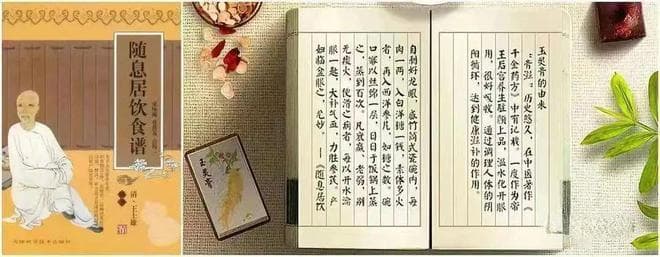 随息居饮食谱
清·王士雄
玉灵膏
玉灵膏的由来
“膏滋”历史悠久，在中医著作《
千金药方》中有记载，一度作为帝
王后宫养生驻颜上品，温水化开服
用，很好吸收。通过调理人体的阴
阳循环，达到健康滋补的作用。
自剥好龙眼，盛竹筒式瓷碗内，每
肉一两，入白洋糖一钱，素体多火
者，再入西洋参片，如糖之数。碗
口罩以丝绵一层，日日于饭锅上蒸
之，蒸到百次。凡衰羸、老弱，别
无痰火，便滑之病者，每以开水瀹
服一匙，大补气血，力胜参芪。产
妇临盆服之，尤妙。—《随息居饮